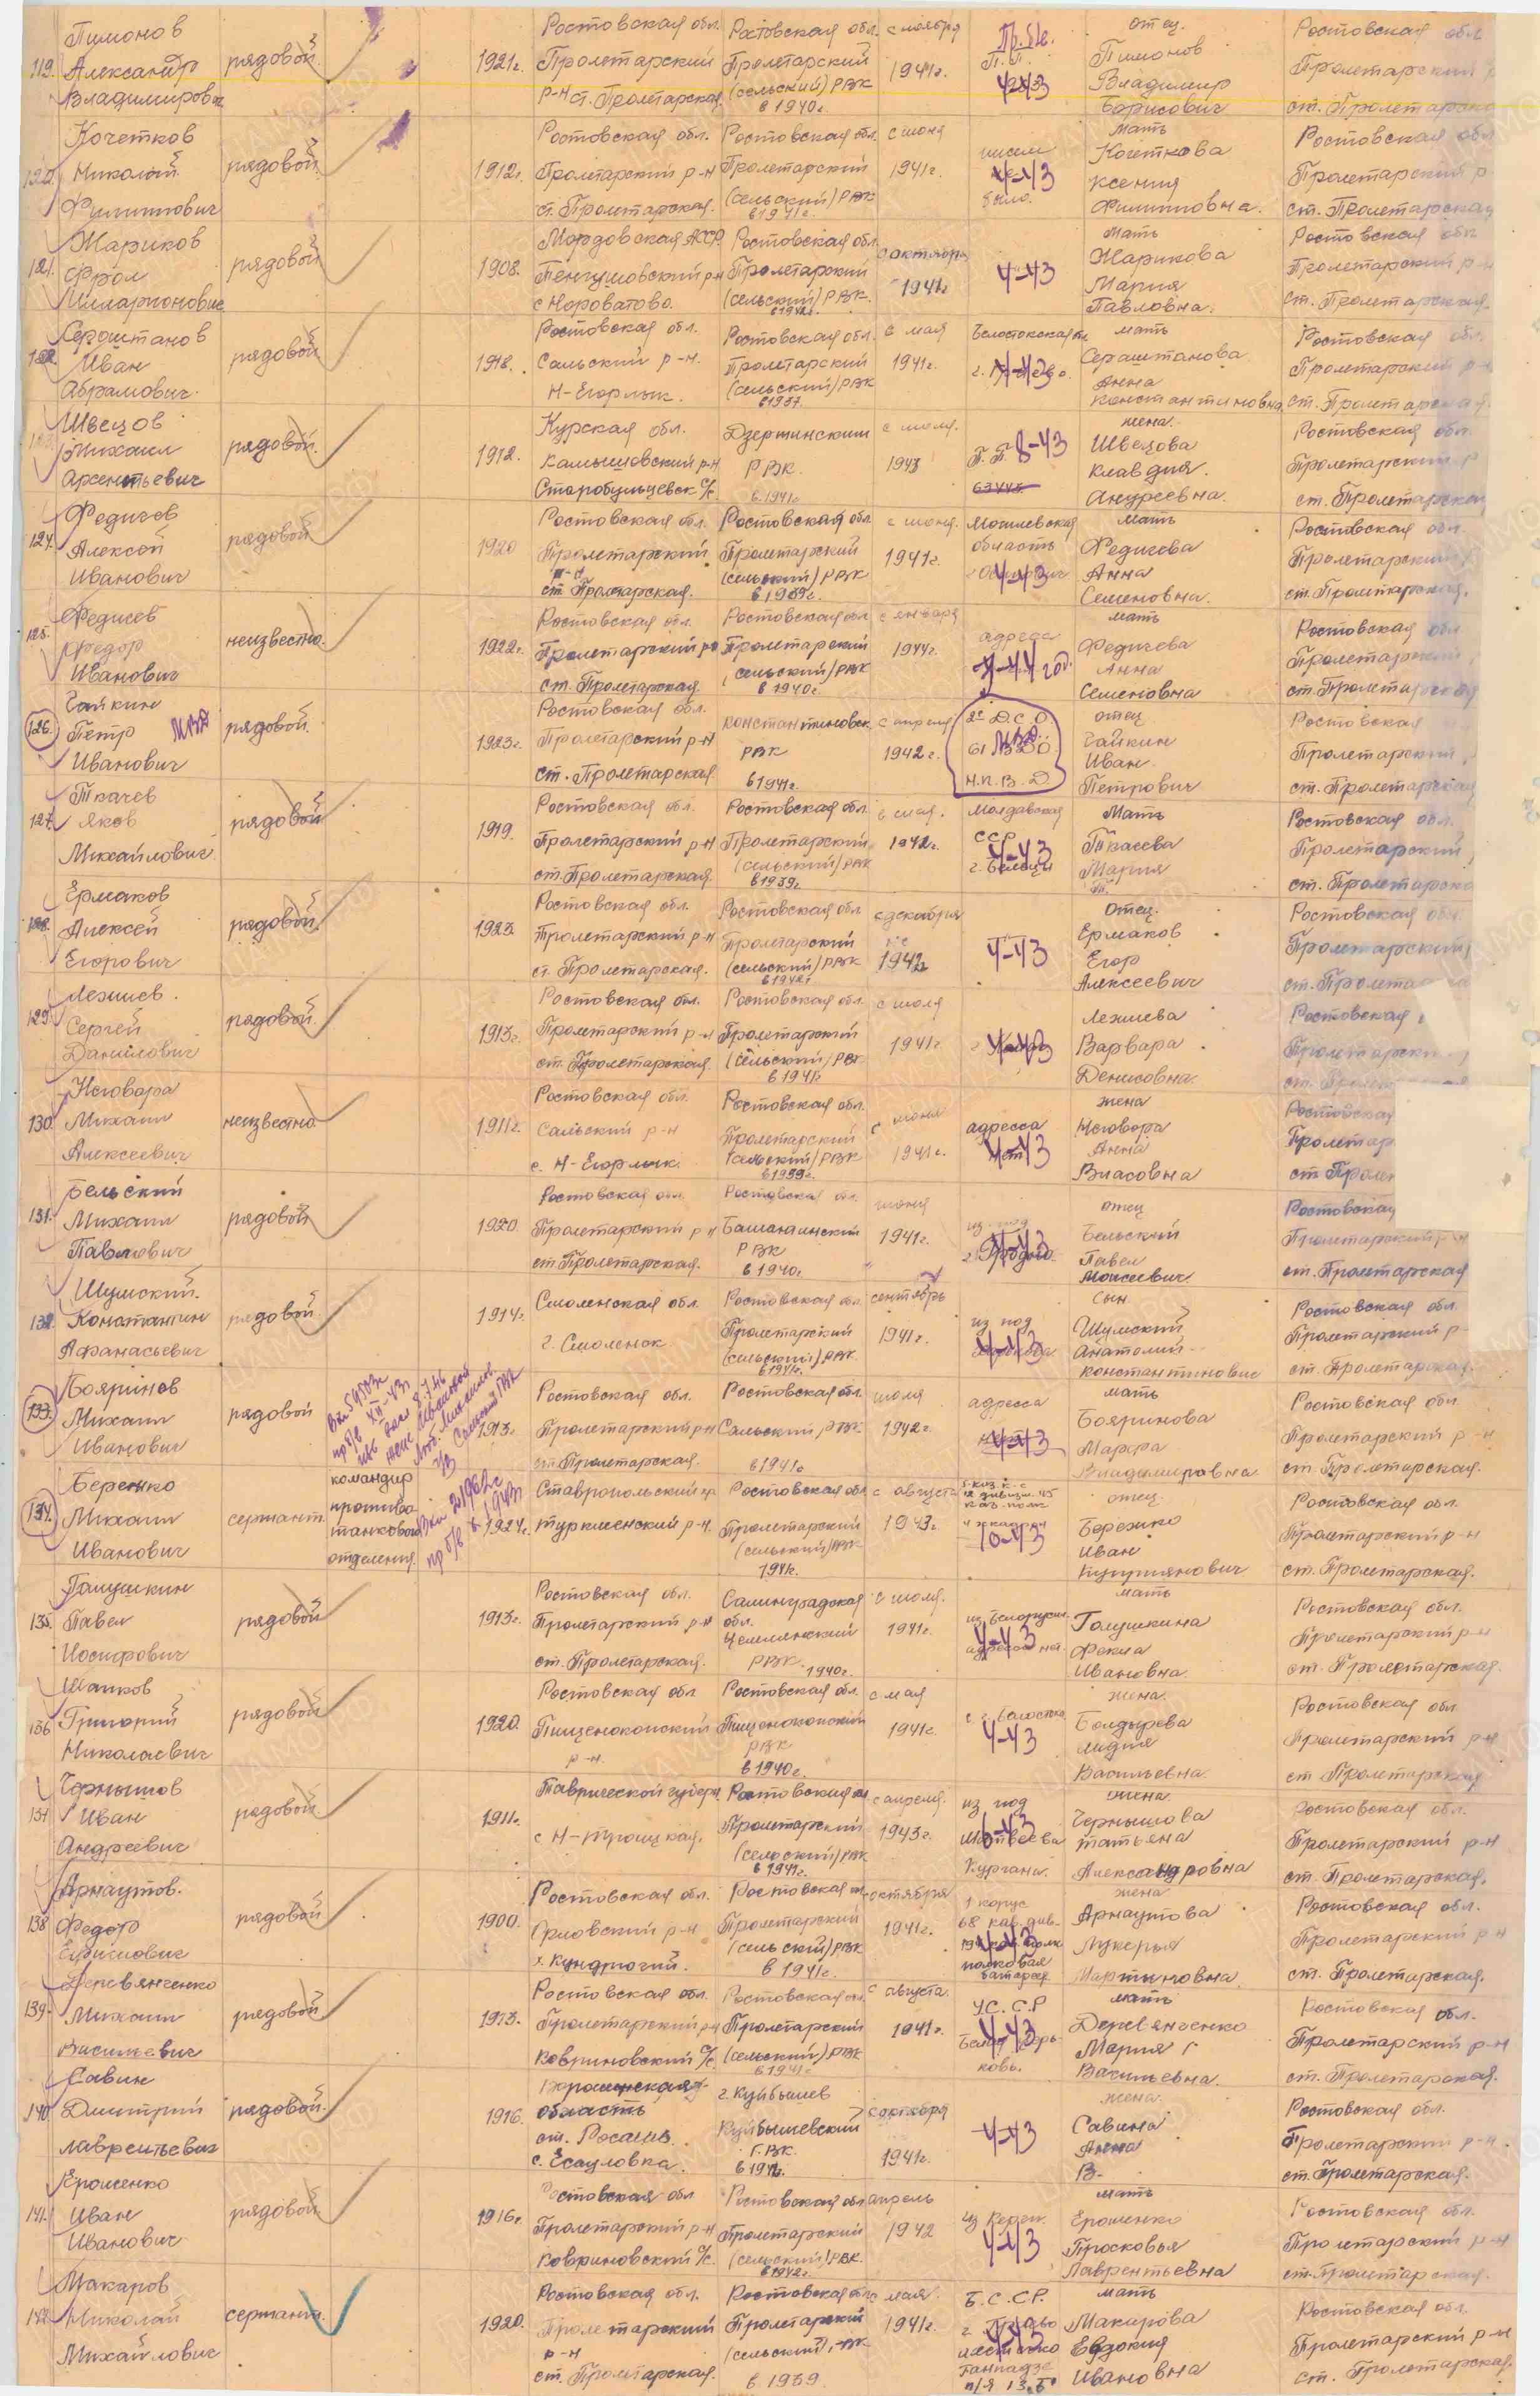 119.
Пимонов
Александр
Владимирович
рядовой
1921г.
Ростовская обл.
Пролетарский
р-н ст. Пролетарская
Ростовская обл.
Пролетарский
(сельский) РВК
в 1940г.
с ноября
1941г.
4-43
отец
Пимонов
Владимир
Борисович
Ростовская обл
Пролетарский
ст. Пролетарская
120.
Кочетков
Николай
Филиппович
рядовой
1912г.
Ростовская обл.
Пролетарский р-н
ст. Пролетарская.
Ростовская обл.
Пролетарский
(сельский) РВК
в 1941г.
с июня
1941г.
писем
4-43
было.
мать
Кочеткова
Ксения
Филипповна.
Ростовская обл
Пролетарский р
ст. Пролетарская
121.
Жариков
Фрол
Илларионович
рядовой
1908.
Мордовская АССР
Теньгушовский р-н
с Нороватово.
Ростовская обл.
Пролетарский
(сельский) РВК.
в 1941г.
с октября
1941г
4-43
мать
Жарикова
Мария
Павловна.
Ростовская обл
Пролетарский р-н
ст. Пролетарская.
122.
Сераштанов
Иван
Абрамович.
рядовой
1918.
Ростовская обл.
Сальский р-н.
Н-Егорлык.
Ростовская обл.
Пролетарский
(сельский) РВК
в 1937.
с мая
1941г.
Белостокская
4-43
мать
Сераштанова
Анна
Константиновна
Ростовская обл.
Пролетарский р-н
ст. Пролетарская.
123.
Швецов
Михаил
Арсентьевич
рядовой.
1912.
Курская обл.
Камышовский р-н
Старобульцевск с/с.
Дзержинский
РВК.
в 1941г
с июля.
1943
П.П. 8-43
жена.
Швецова
Клавдия.
Андреевна.
Ростовская обл.
Пролетарский р
ст. Пролетарская
124.
Федичев
Алексей
Иванович
рядовой
1920
Ростовская обл.
Пролетарский
р-н
ст Пролетарская.
Ростовская обл
Пролетарский
(сельский) РВК
в 1939г.
с июня.
1941г.
Могилевская
область
4-43
мать
Федичева
Анна
Семеновна.
Ростовская обл.
Пролетарский
ст. Пролетарская.
125.
Федичев
Федор
Иванович
неизвестно.
1922г.
Ростовская обл.
Пролетарский р-н
ст. Пролетарская
Ростовская обл
Пролетарский
(сельский) РВК
в 1940г
с января
1944г.
адреса
4-44 год.
мать
Федичева
Анна
Семеновна
Ростовская обл
Пролетарский
ст. Пролетарская
126.
Чайкин
Петр
Иванович
рядовой.
1923г.
Ростовская обл.
Пролетарский р-н
ст. Пролетарская
Константиновск.
РВК
в 1941г.
с апреля
1942г.
2е Д.С.О.
61
Н.К.В.Д.
отец
Чайкин
Иван
Петрович
Ростовская
Пролетарский
ст. Пролетарская
127.
Ткачев
Яков
Михайлович.
рядовой
1919.
Ростовская обл.
Пролетарский р-н
ст. Пролетарская.
Ростовская обл.
Пролетарский
(сельский) РВК
в 1939г.
с мая.
1942г.
Молдавская
ССР
4-43
г. Бельцы
Мать
Ткачева
Мария
Ростовская обл.
Пролетарский
ст. Пролетарская
128.
Ермаков
Алексей
Егорович
рядовой.
1923.
Ростовская обл.
Пролетарский р-н
ст. Пролетарская.
Ростовская обл
Пролетарский
(сельский) РВК
в 1942г
с декабря
1942г
4-43
отец.
Ермаков
Егор
Алексеевич
Ростовская обл.
Пролетарский
ст. Пролетарская
129.
Лежнев.
Сергей
Данилович
рядовой.
1913г.
Ростовская обл.
Пролетарский р-н
ст. Пролетарская.
Ростовская обл.
Пролетарский
(сельский) РВК
в 1941г
с июля
1941г.
4-43
Лежнева
Варвара
Денисовна.
Ростовская
Пролетарский
130.
Неговора
Михаил
Алексеевич
неизвестно.
1911г.
Ростовская обл.
Сальский р-н
с. Н-Егорлык.
Ростовская обл.
Пролетарский
(сельский) РВК
в 1939г.
с июня
1941г.
адресса
4-43
жена
Неговора
Анна
Власовна
Ростовская
Пролетар
ст Пролет
131.
Бельский
Михаил
Павлович
рядовой
1920.
Ростовская обл.
Пролетарский р-н
ст. Пролетарская.
Ростовская обл.
Башантинский
РВК
в 1940г.
июня
1941г.
из под
4-43
отец
Бельский
Павел
Моисеевич
Ростовская
Пролетарский р-н
ст. Пролетарская
132.
Шумский.
Константин
Афанасьевич
рядовой
1914г.
Смоленская обл.
г. Смоленск
Ростовская обл.
Пролетарский
(сельский) РВК.
в 1941г.
сентябрь
1941г.
из под
4-43
сын
Шумский
Анатолий
Константинович
Ростовская обл.
Пролетарский р-
ст. Пролетарская.
133.
Бояринов
Михаил
Иванович
рядовой
1913г.
Ростовская обл.
Пролетарский р-н
ст. Пролетарская.
Ростовская обл.
Сальский РВК
в 1941г
июля
1942г.
адресса
4-43
мать
Бояринова
Марфа
Владимировна
Ростовская обл.
Пролетарский р-н
ст. Пролетарская.
134.
Бережко
Михаил
Иванович
сержант.
командир
противо
танкового
отделения.
1924г.
Ставропольский кр
Туркменский р-н.
Ростовская обл
Пролетарский
(сельский) РВК
1941г.
с августа
1943г.
10-43
отец.
Бережко
Иван
Куприянович
Ростовская обл.
Пролетарский р-н
ст. Пролетарская.
135.
Галушкин
Павел
Иосифович
рядовой
1913г.
Ростовская обл.
Пролетарский р-н
ст. Пролетарская.
Сталинградская
обл.
Цемлянский
РВК.
1940г.
с июля.
1941г.
из Белорусии
4-43
мать
Галушкина
Фекла
Ивановна.
Ростовская обл.
Пролетарский р-н
ст. Пролетарская.
136
Шапков
Григорий
Николаевич
рядовой
1920.
Ростовская обл
Пищенокопский
р-н.
Ростовская обл.
Пищенокопский
РВК
в 1940г.
с мая
1941г.
4-43
жена.
Болдырева
Лидия
Васильевна.
Ростовская обл
Пролетарский р-н
ст Пролетарская
137
Чернышов
Иван
Андреевич
рядовой.
1911г.
Таврической губерн.
с Н-Троицкая.
Ростовская обл
Пролетарский
(сельский) РВК
в 1941г.
с апреля.
1943г.
из под
Матвеева
Кургана.
жена.
Чернышова
Татьяна
Александровна
Ростовская обл.
Пролетарский р-н
ст. Пролетарская.
138
Арнаутов.
Федор
рядовой
1900.
Ростовская обл.
Орловский р-н
х. Кундрючий.
Ростовская обл
Пролетарский
(сельский) РВК
в 1941г.
октября
1941г.
1 корпус
68 кав. див.
4-43
полковая
батарея.
жена
Арнаутова
Лукерья
Мартыновна.
Ростовская обл.
Пролетарский р-н
ст. Пролетарская.
139.
Деревянченко
Михаил
Васильевич
рядовой
1923.
Ростовская обл.
Пролетарский р-н
Ковриновский с/с.
Ростовская обл.
Пролетарский
(сельский) РВК
в 1941г
с августа.
1941г.
УС.С.Р
4-43
мать
Деревянченко
Мария
Васильевна.
Ростовская обл.
Пролетарский р-н
ст. Пролетарская.
140
Савин
Дмитрий
Лаврентьевич
рядовой.
1916.
область
ст. Россошь.
с. Есауловка.
г. Куйбышев
Куйбышевский
Г.ВК.
в 1941г.
с октября
1941г.
4-43
жена.
Савина
Анна
В.
Ростовская обл.
Пролетарский р-н.
ст. Пролетарская.
141.
Ерошенко
Иван
Иванович
рядовой
1916г.
Ростовская обл
Пролетарский р-н
Ковриновский с/с.
Ростовская обл
Пролетарский
(сельский) РВК.
в 1942г.
апрель
1942
из Керчи.
4-43
мать
Ерошенко
Просковья
Лаврентьевна
Ростовская обл.
Пролетарский р-н
ст. Пролетарская.
142
Макаров
Николай
Михайлович
сержант.
1920.
Ростовская обл.
Пролетарский
р-н
ст. Пролетарская.
Ростовская обл
Пролетарский
(сельский) РВК
в 1939
с мая.
1941г.
Б.С.СР.
4-43
мать
Макарова
Евдокия
Ивановна
Ростовская обл.
Пролетарский р-н
ст. Пролетарская.